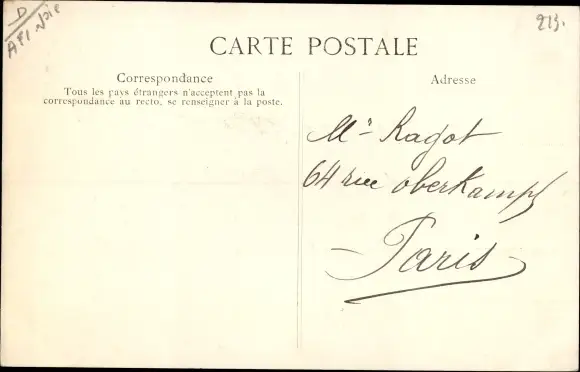 D
213.
CARTE POSTALE
Correspondance
Tous les pays étrangers n'acceptent pas la
correspondance au recto, se renseigner à la poste.
Adresse
Mr Ragot
64 rue oberkampf
Paris